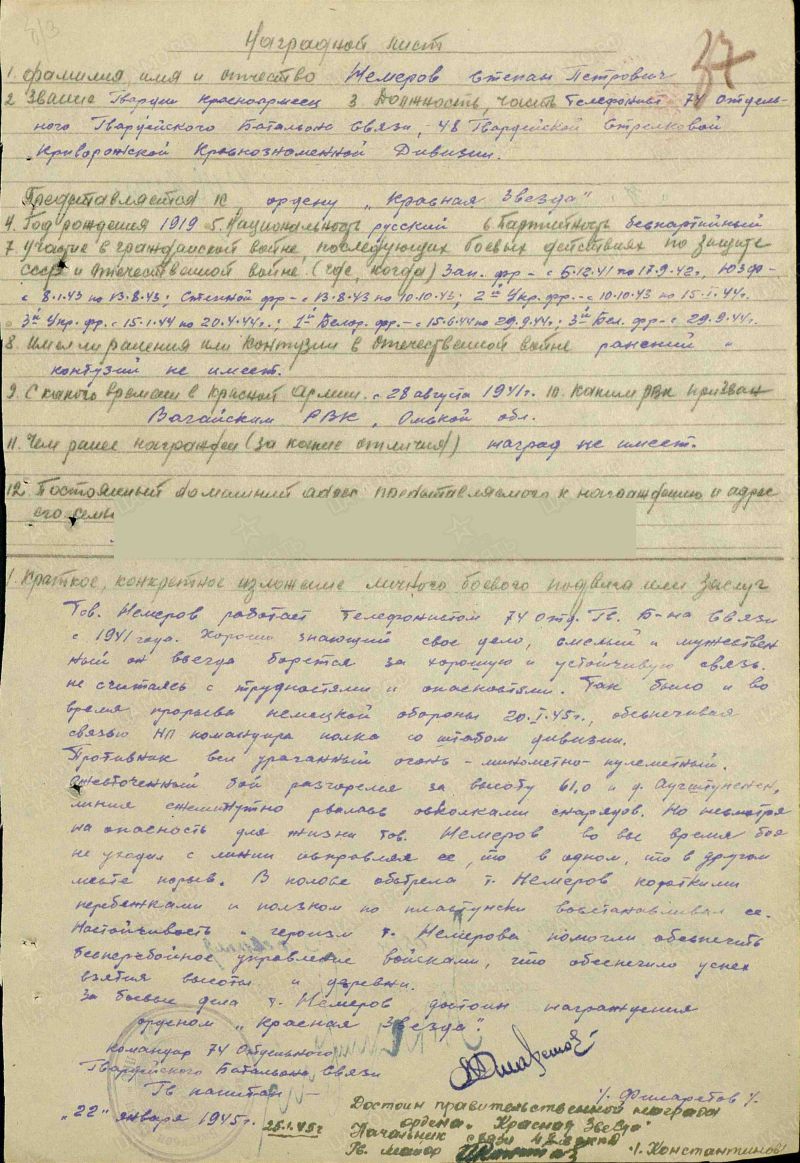 37
Наградной лист
1. Фамилия, имя и отчество Немеров Степан Петрович
2 Звание Гвардии красноармеец 3. Должность, часть Телефонист 74 отдель-
ного Гвардейского Батальона Связи, 48 Гвардейской Стрелковой
Криворожской Краснознаменной Дивизии.
Представляется к ордену „Красная Звезда"
4. Год рождения 1919 5. Национальность русский 6. Партийность беспартийный
7. Участие в гражданской войне, последующих боевых действиях по защите
СССР и отечественной войне (где, когда) Зап. фр – с 5.12.41 по 17.9.42г., ЮЗФ-
с 8.1.43 по 13.8.43; Степной фр – с 13.8.43 по 10.10.43; 2й Укр. фр. – с 10.10.43 по 15.I.44г.
3й Укр. фр. с 15.1.44 по 20.4.44г.; 1й Белор. фр. – с 15.6.44 по 29.9.44г; 3й Бел. фр – с 29.9.44г.
8. Имел ли ранения или контузии в отечественной войне ранений и
контузий не имеет.
9. С какого времени в красной армии с 28 августа 1941г. 10. каким РВК призван
Вагайским РВК, Омской обл.
11. Чем ранее награжден (за какие отличия) наград не имеет.
12. Постоянный домашний адрес представляемого к награждению и адрес
его семьи
1. Краткое, конкретное изложение личного боевого подвига или заслуг
Тов. Немеров работает телефонистом 74 отд. Гв. Б-на Связи
с 1941 года. Хорошо знающий свое дело, смелый и мужествен
ный он всегда борется за хорошую и устойчивую связь.
не считаясь с трудностями и опасностями. Так было и во
время прорыва немецкой обороны 20.I.45г., обеспечивая
связью НП командира полка со штабом дивизии.
Противник вел ураганный огонь – минометно-пулеметный.
Ожесточенный бой разгорелся за высоту 61,0 и д. Аугступенен,
линия ежеминутно рвалась осколками снарядов. Но несмотря
на опасность для жизни тов. Немеров во все время боя
не уходил с линии исправляя ее, то в одном, то в другом
месте порыв. В полосе обстрела т. Немеров короткими
перебежками и ползком по пластунски восстанавливал ее.
Настойчивость и героизм т. Немерова помогли обеспечить
бесперебойное управление войсками, что обеспечило успех
взятия высоты и деревни.
За боевые дела т. Немеров достоин награждения
орденом „Красная Звезда".
командир 74 Отдельного
Гвардейского Батальона Связи
Гв капитан –
/. Филаретов /.
„22" января 1945г.
25.1.45г
Достоин правительственной награды
ордена „Красная Звезда"
Начальник связи
Гв. майор
/. Константинов/